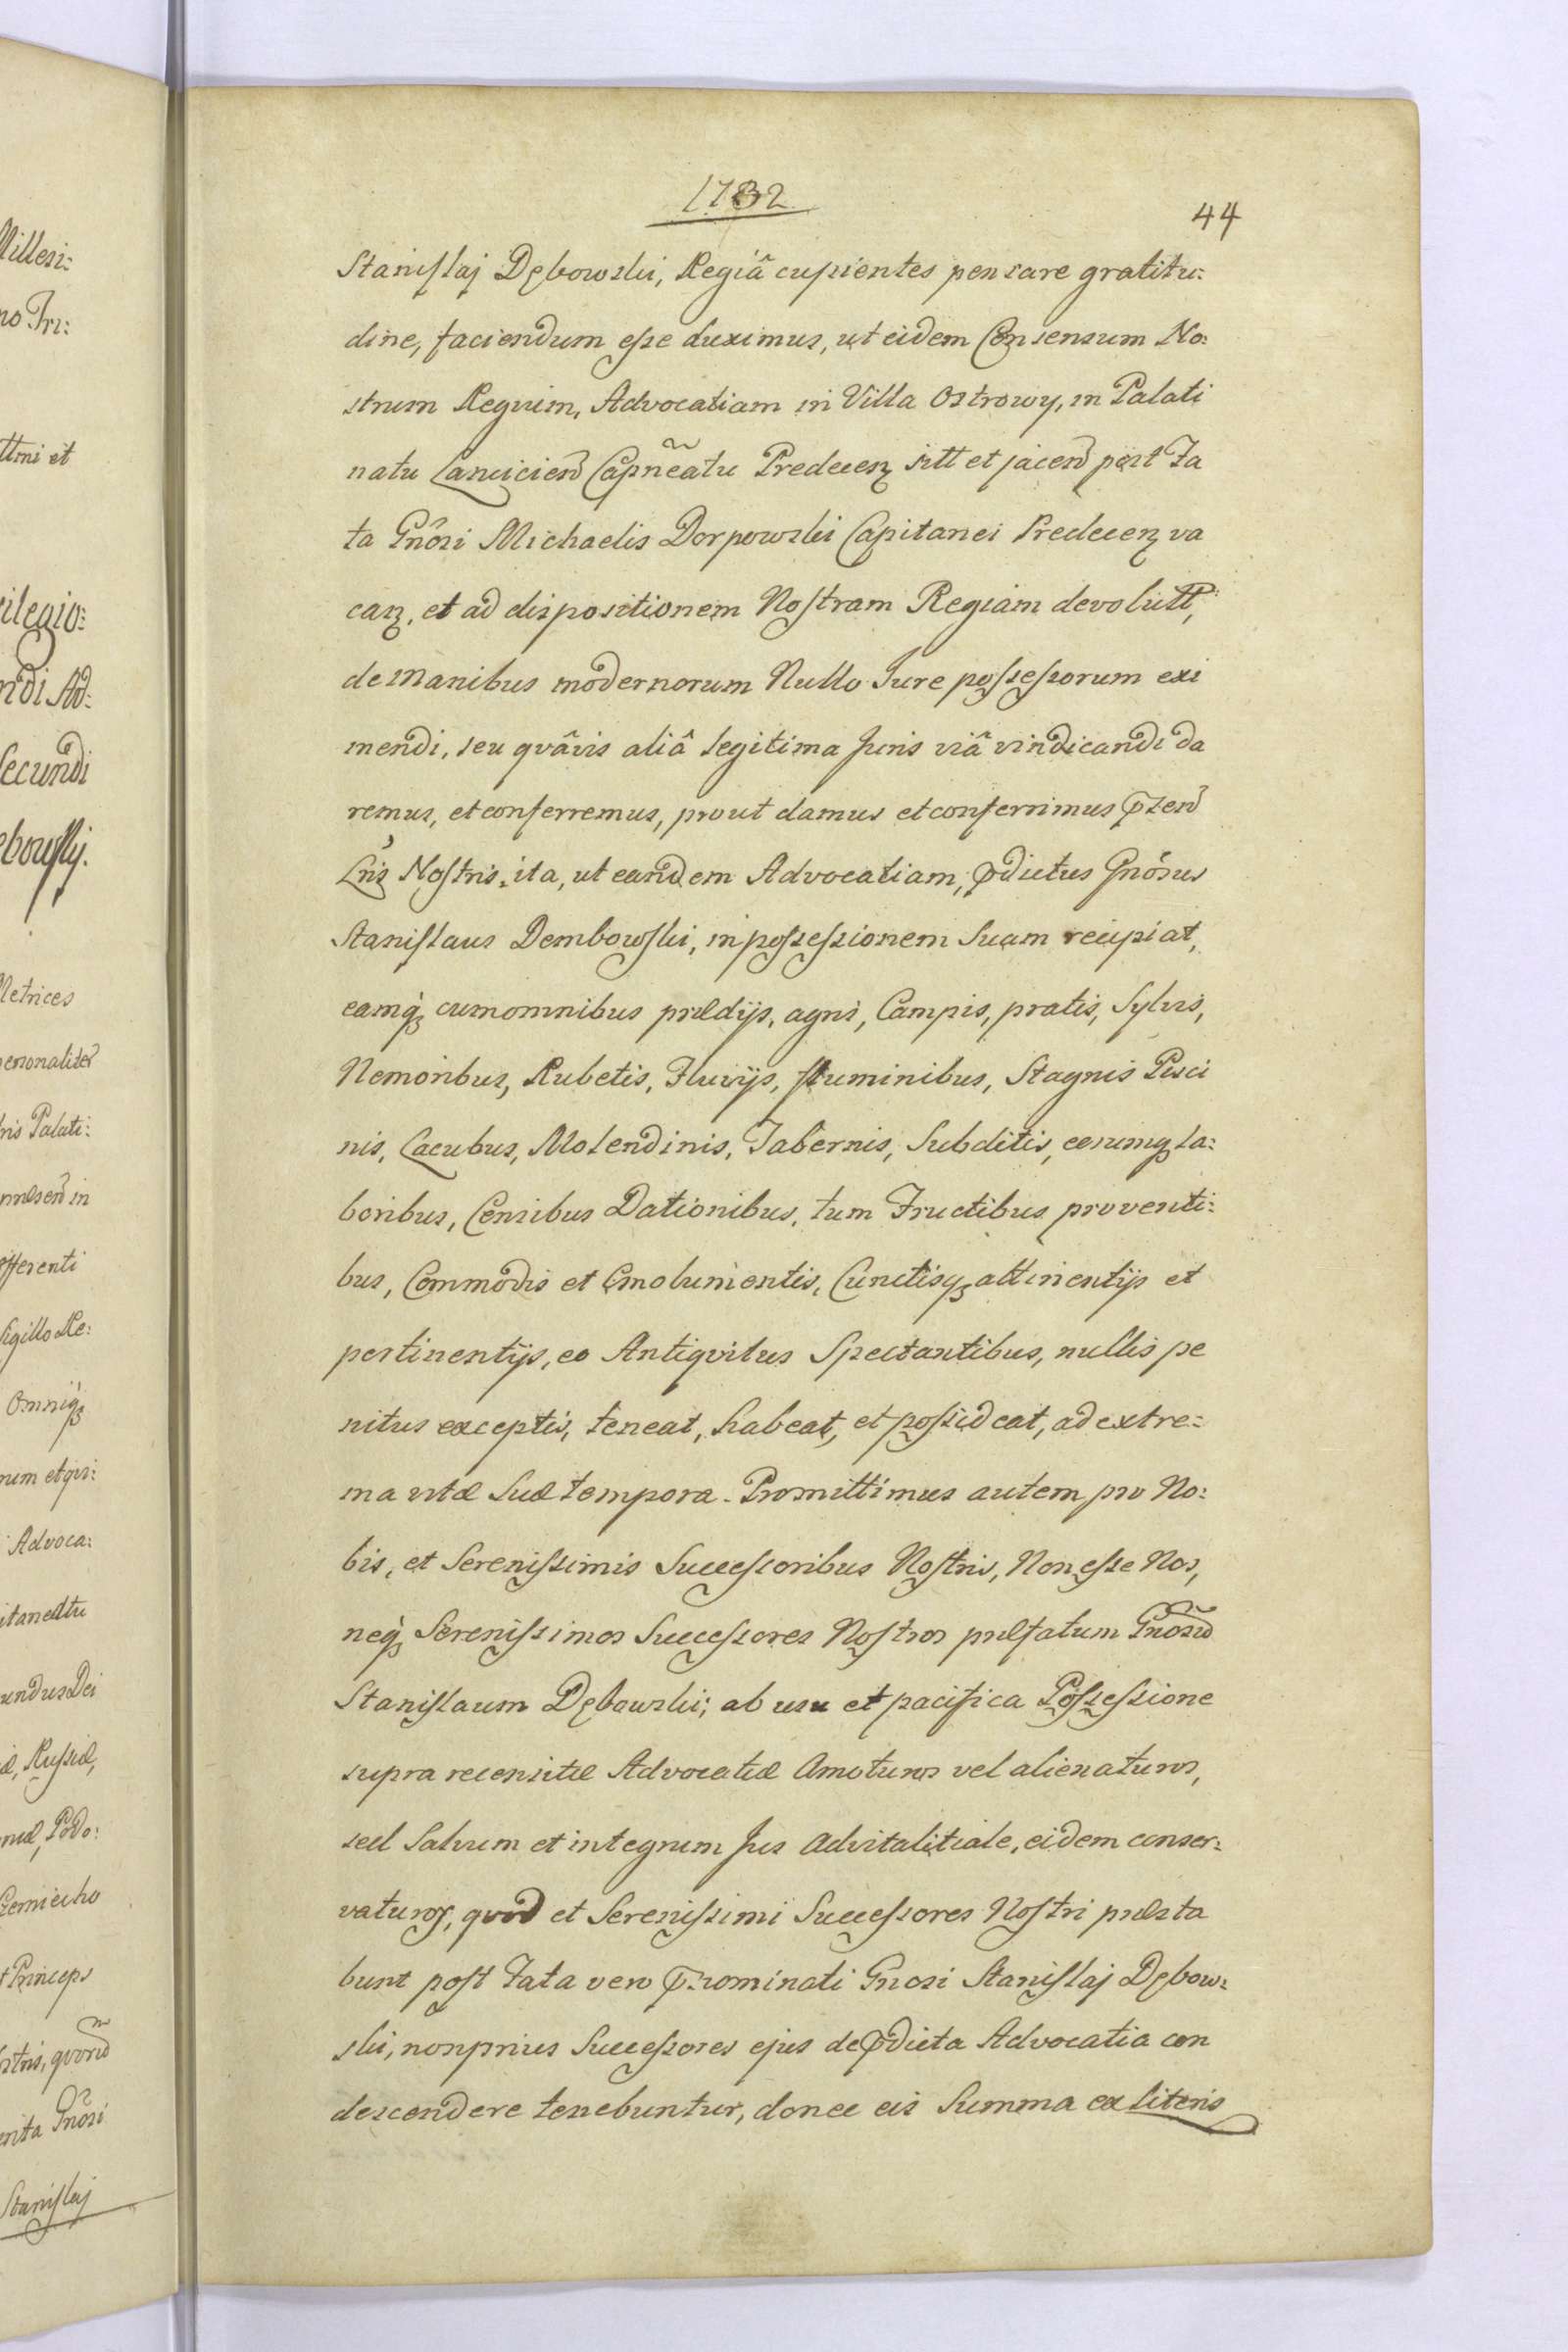 Millesi:
no Tri:
ttmi et
vilegio:
ndi Ad:
Secundi
ębowski.
Metrices
personaliter
tris Palati:
præsen in
offerenti
Sigillo Re:
Omniq
num et qvi:
Advoca:
itaneatu
undus Dei
æ, Russiæ,
niæ, Podo:
Czerniecho
t Princeps
stris, qvoru
erita Gnosi
Stanislaj
1732
44
Stanislaj Dębowski, Regiâ cupientes pensare gratitu:
dine, faciendum esse duximus, ut eidem Consensum No:
strum Regium, Advocatiam in Villa Ostrowy, in Palati
natu Lancicien Capneatu Predecen sitt et jacen post Fa
ta Gnosi Michaelis Dorpowski Capitanei Predecen va
can, et ad dispositionem Nostram Regiam devolutt,
de manibus modernorum Nullo Jure possessorum exi
mendi, seu qvâvis aliâ legitima Juris viâ vindicandi da
remus, et conferremus, prout damus et conferrimus pzen
Lris Nostris, ita, ut eandem Advocatiam, pdictus Gnosus
Stanislaus Dembowski, in possessionem Suam recipiat,
eamq cum omnibus prædijs, agris, Campis, pratis, Sylvis,
Nemoribus, Rubetis, Fluvijs, fluminibus, Stagnis Pisci
nis, Lacubus, Molendinis, Tabernis, Subditis, eorumq la:
boribus, Censibus Dationibus, tum Fructibus proventi:
bus, Commodis et Emolumentis, Cunctisq attinentijs et
pertinentijs, eo Antiqvitus Spectantibus, nullis pe
nitus exceptis, teneat, habeat, et possideat, ad extre:
ma vitæ Suæ tempora. Promittimus autem pro No:
bis, et Serenissimis Successoribus Nostris, Non esse Nos,
neq Serenissimos Successores Nostros præfatum Gnosu
Stanislaum Dębowski; ab usu et pacifica Possessione
supra recensitæ Advocatiæ Amoturos vel alienaturos,
sed Salvum et integrum Jus Advitalitiale, eidem conser:
vaturos, qvod et Serenissimi Successores Nostri præsta
bunt post Fata vero pnominati Gnosi Stanislaj Dębow:
ski, non prius Successores ejus de pdicta Advocatia con
descendere tenebuntur, donec eis Summa ex literis